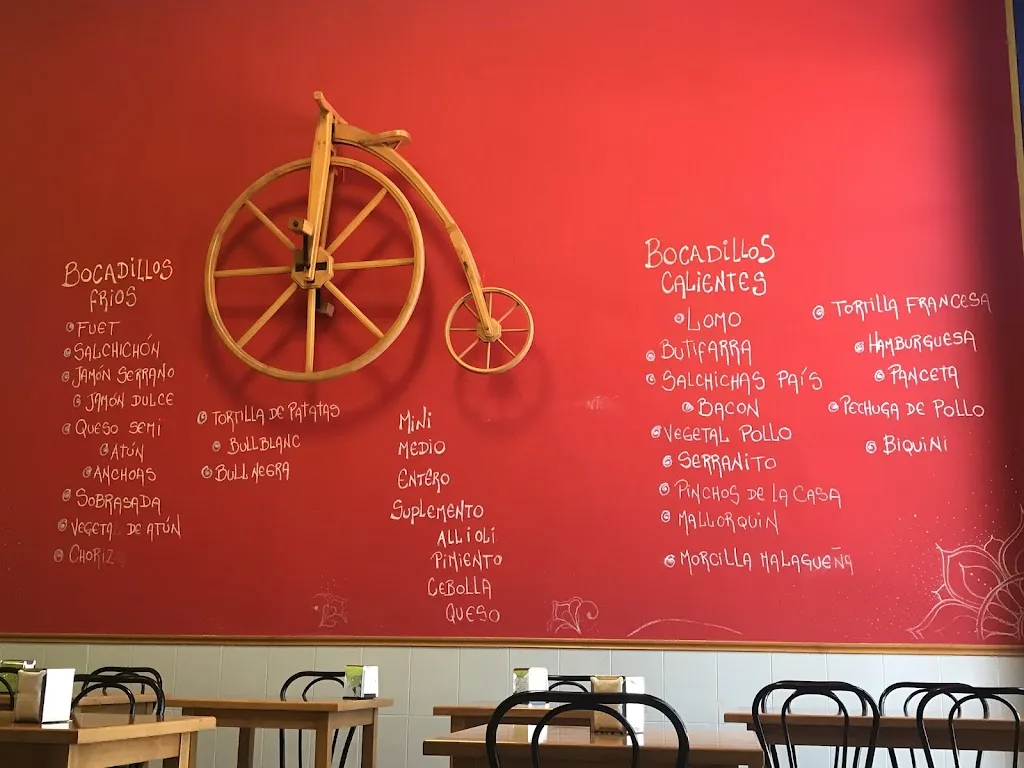 BOCADILLOS
FRIOS
FUET
SALCHICHÓN
JAMÓN SERRANO
JAMÓN DULCE
QUESO SEMI
ATÚN
ANCHOAS
SOBRASADA
VEGETAL DE ATÚN
CHORIZ
TORTILLA DE PATATAS
BULL BLANC
BULL NEGRA
MINI
MEDIO
ENTERO
SUPLEMENTO
ALLIOLI
PIMIENTO
CEBOLLA
QUESO
BOCADILLOS
CALIENTES
LOMO
BUTIFARRA
SALCHICHAS PAÍS
BACON
VEGETAL POLLO
SERRANITO
PINCHOS DE LA CASA
MALLORQUIN
MORCILLA MALAGUEÑA
TORTILLA FRANCESA
HAMBURGUESA
PANCETA
PECHUGA DE POLLO
BIQUINI